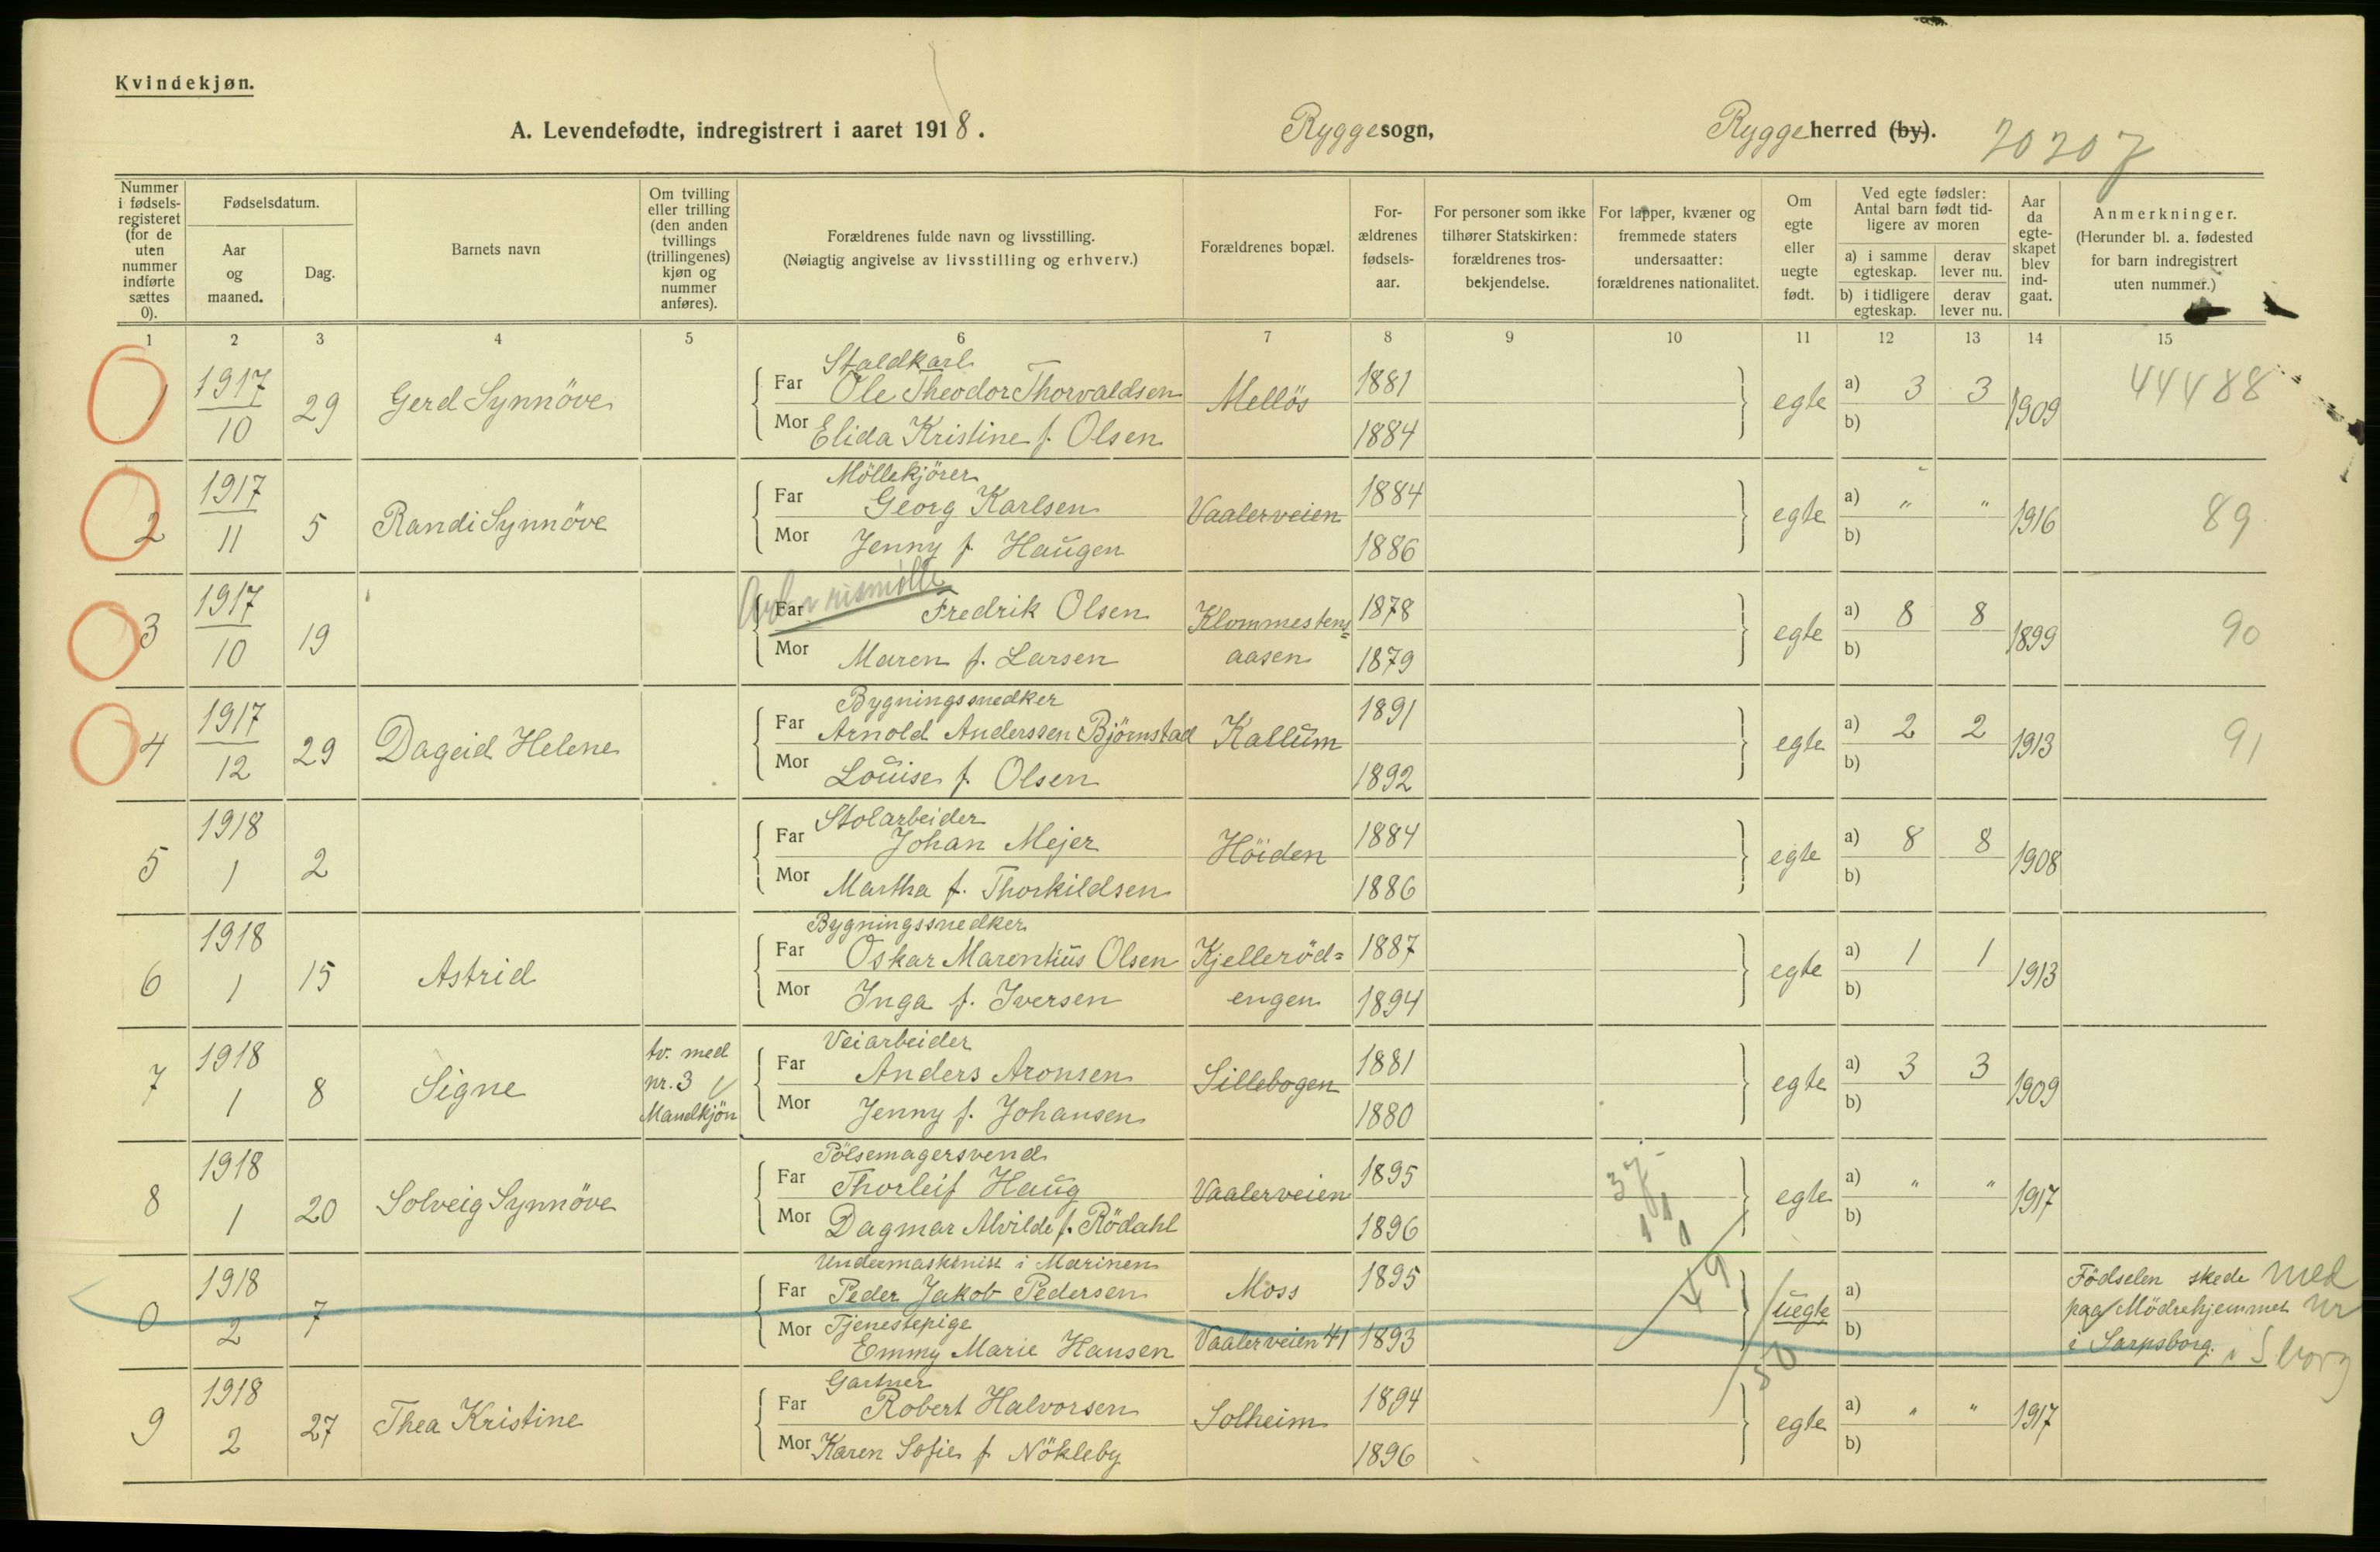 Kvindekjøn.
A. Levendefødte, indregistrert i aaret 1918.
Rygge sogn,
Rygge herred (by).
20207
Nummer i fødsels-registeret (for de uten nummer indførte sættes 0).
Fødselsdatum.
Aar og maaned.
Dag.
Barnets navn
Om tvilling eller trilling (den anden tvillings (trillingenes) kjøn og nummer anføres).
Forældrenes fulde navn og livsstilling.
(Nøiagtig angivelse av livsstilling og erhverv.)
Forældrenes bopæl.
For-ældrenes fødsels-aar.
For personer som ikke tilhører Statskirken: forældrenes tros-bekjendelse.
For lapper, kvæner og fremmede staters undersaatter: forældrenes nationalitet.
Om egte eller uegte født.
Ved egte fødsler: Antal barn født tid-ligere av moren
a) i samme egteskap.
derav lever nu.
b) i tidligere egteskap.
derav lever nu.
Aar da egte-skapet blev ind-gaat.
Anmerkninger.
(Herunder bl. a. fødested for barn indregistrert uten nummer.)
1 2 3 4 5 6 7 8 9 10 11 12 13 14 15
Staldkarl
1 1917 10 29 Gerd Synnöve Far Ole Theodor Thorvaldsen Mellös 1881 egte a) 3 3 1909 44488
Mor Elida Kristine f. Olsen 1884 b)
Möllekjörer
2 1917 11 5 Randi Synnöve Far Georg Karlsen Vaalerveien 1884 egte a) " " 1916 89
Mor Jenny f. Haugen 1886 b)
3 1917 10 19 Far Fredrik Olsen Klommestens= 1878 egte a) 8 8 1899 90
Mor Maren f. Larsen aasen 1879 b)
Bygningssnedker
4 1917 12 29 Dageid Helene Far Arnold Anderssen Björnstad Kallum 1891 egte a) 2 2 1913 91
Mor Louise f. Olsen 1892 b)
Stolarbeider
5 1918 1 2 Far Johan Mejer Höiden 1884 egte a) 8 8 1908
Mor Martha f. Thorkildsen 1886 b)
Bygningssnedker
6 1918 1 15 Astrid Far Oskar Marentius Olsen Kjelleröd= 1887 egte a) 1 1 1913
Mor Inga f. Iversen engen 1894 b)
Veiarbeider
7 1918 1 8 Signe tv. med nr. 3 Mandkjön Far Anders Aronsen Sillebogen 1881 egte a) 3 3 1909
Mor Jenny f. Johansen 1880 b)
Pölsemagersvend
8 1918 1 20 Solveig Synnöve Far Thorleif Haug Vaalerveien 1895 egte a) " " 1917
Mor Dagmar Alvilde f. Rödahl 1896 b)
37
1 1
1
49
Undermaskinist i Marinen
0 1918 2 7 Far Peder Jakob Pedersen Moss 1895 uegte a) Födselen skede paa Mödrehjemmet i Sarpsborg.
Tjenestepige
Mor Emmy Marie Hansen Vaalerveien 41 1893 b)
med nr i Sborg
50
Gartner
9 1918 2 27 Thea Kristine Far Robert Halvorsen Solheim 1894 egte a) " " 1917
Mor Karen Sofie f Nökleby 1896 b)